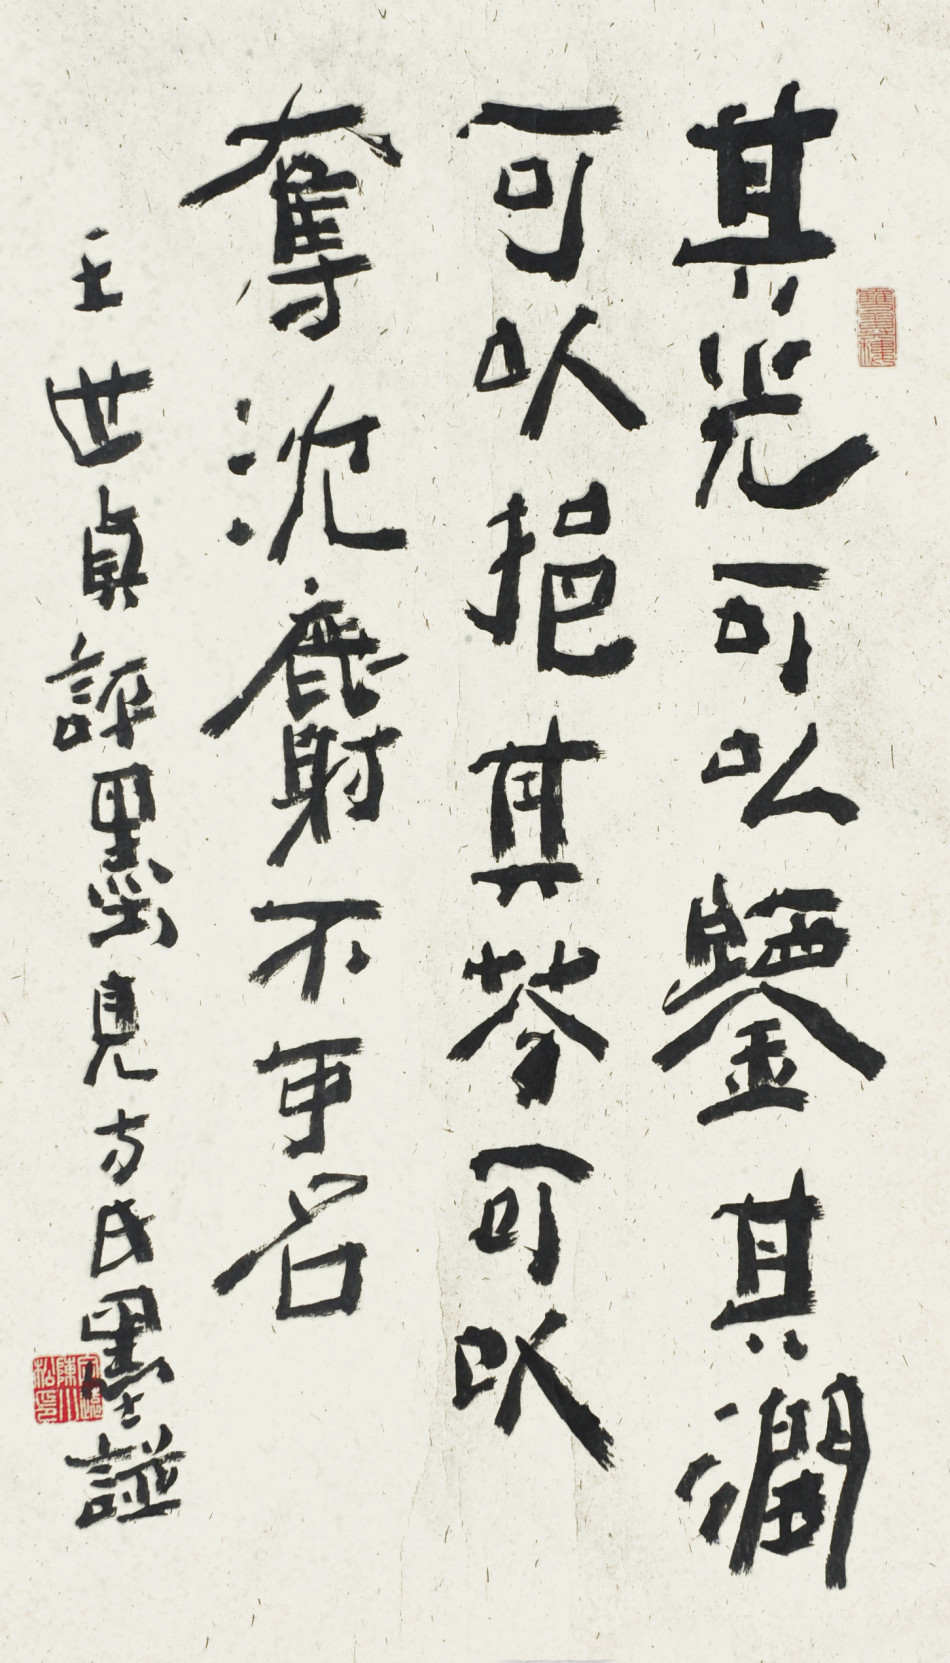 其光可以鑒其潤
可以挹其芬可以
奪沈麝不爭名
王世貞評墨見方氏墨譜